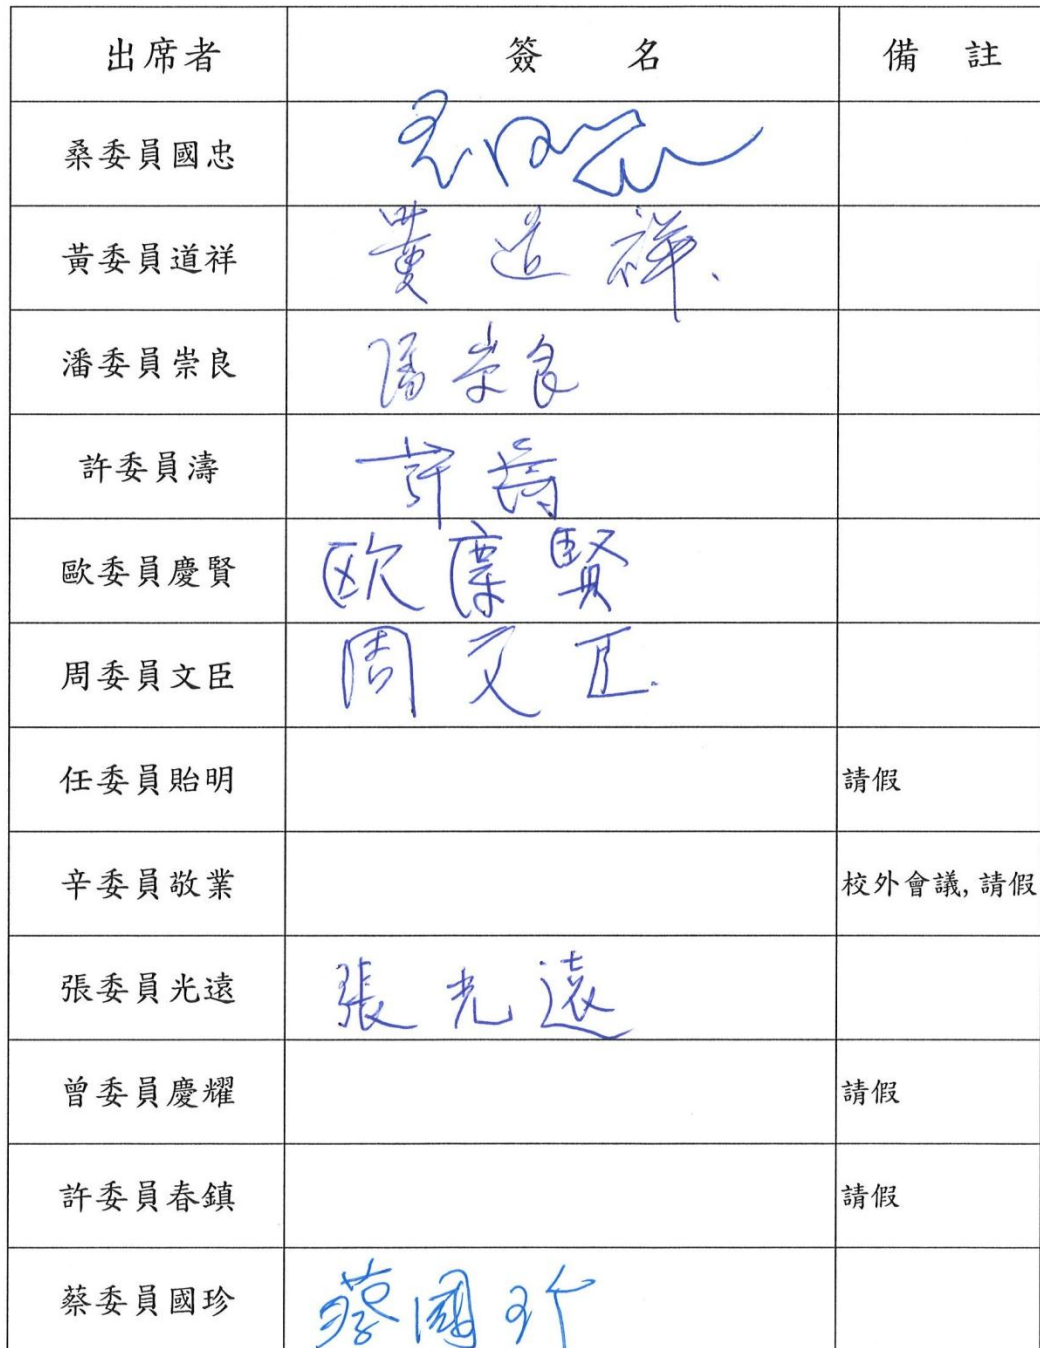 出席者 簽名 備註
桑委員國忠
黃委員道祥 黃道祥
潘委員崇良 潘崇良
許委員濤 許濤
歐委員慶賢 欧慶賢
周委員文臣 周文臣
任委員貽明 請假
辛委員敬業 校外會議,請假
張委員光遠 張光遠
曾委員慶耀 請假
許委員春鎮 請假
蔡委員國珍 蔡國珍